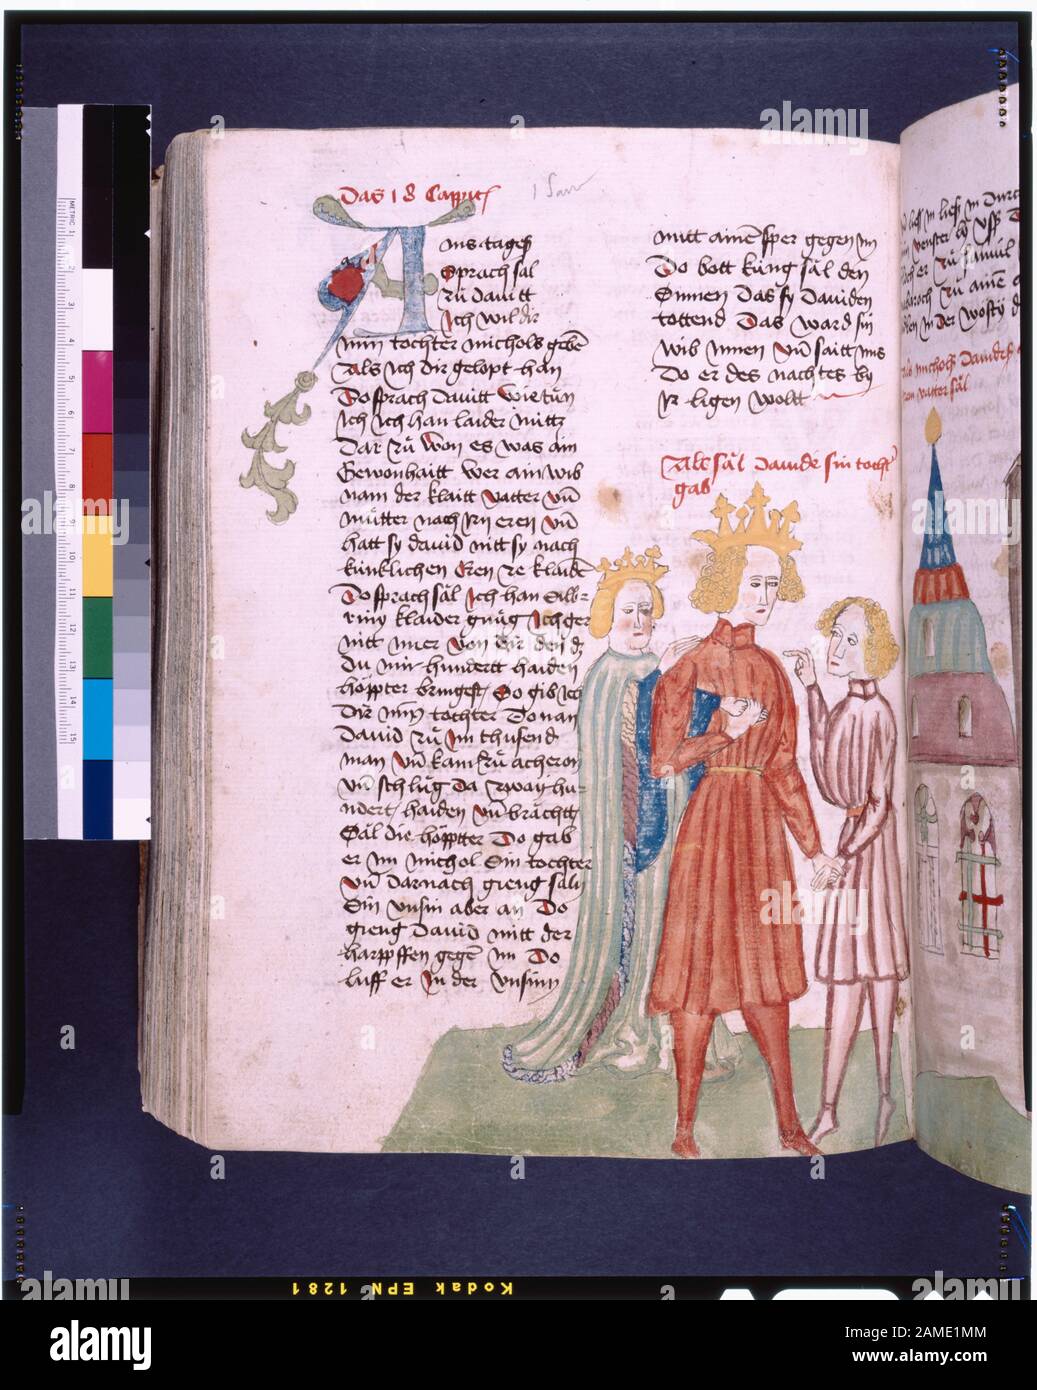 Das 18 Cappitel
1 Sam
Ains tages
Sprach sal
zů Dauitt
Ich wil dir
min tochter michols geben
Als ich dir gelopt han
Do sprach Dauitt wie tůn
ich ich han laider nittz
Dar zů won es was ain
Gewonhaitt wer ain wib
nam der klaitt vatter vn̄
můtter nach irn eren vn̄
hatt sy dauid nitt sy nach
künklichen Eren ze klaiden
Do sprach sal ich han Silb
riny klaider gnůg Ich ger
nitt mer von dir den dz
Du mir hundertt haiden
höppter bringest So gib ich
Dir min tochter Do nan
Dauid zů im thusend
man vn̄ kam zů acheron
vn̄ schlůg da zway hu
ndert haiden vn̄ brächtt
Sal die höptter Do gab
er im michol Sin tochter
vn̄ darnach gieng saln
Sin vnsin aber an Do
gieng Dauid mitt der
harpffen gegē im Do
luff er in der vnsinn
mitt ainē sper gegen im
Do bott küng sal den
Sinnen Das sy Dauiden
tottend Das ward sin
wib innen vn̄ saitt ims
Do er des nachtes by
ir ligen woltt
Als sal dauide sin tochter
gab
METRIC 1 2 3 4 5 6 7 8 9 10 11 12 13 14 15
Kodak EPN 1281
alamy
Image ID: 2AME1MM
www.alamy.com